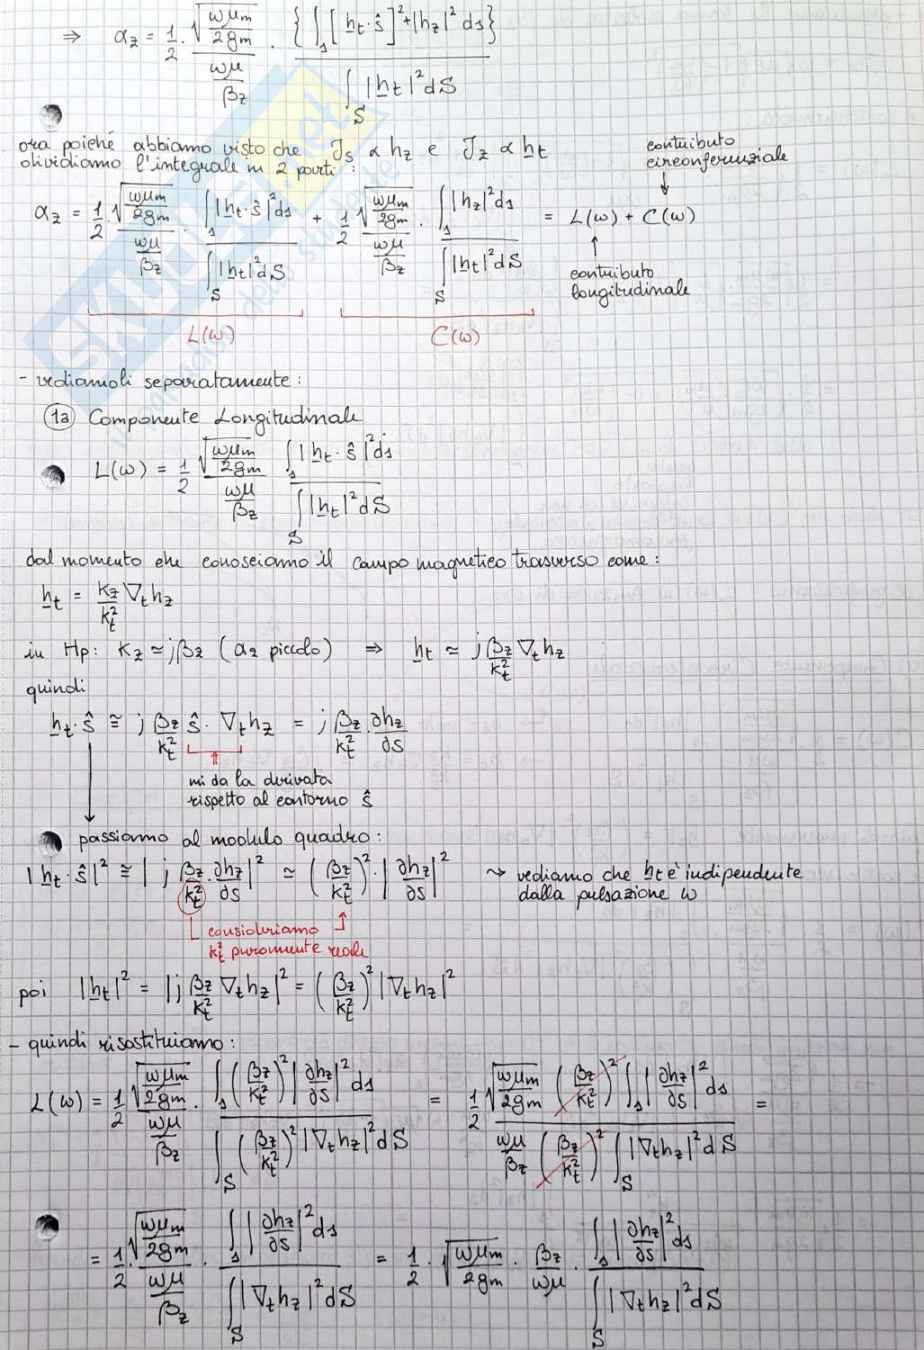 ⇒ α_z = 1/2 · √(ωμ_m/2g_m) / (ωμ/β_z) · {∫_s [h_t·ŝ]² + |h_z|² ds} / ∫_S |h_t|² dS
ora poiché abbiamo visto che J_s ∝ h_z e J_z ∝ h_t
dividiamo l'integrale in 2 parti:
contributo
circonferenziale
α_z = 1/2 · √(ωμ_m/2g_m) / (ωμ/β_z) · ∫_s |h_t·ŝ|² ds / ∫_S |h_t|² dS + 1/2 √(ωμ_m/2g_m) / (ωμ/β_z) · ∫_s |h_z|² ds / ∫_S |h_t|² dS = L(ω) + C(ω)
contributo
longitudinale
L(ω) C(ω)
- vediamoli separatamente:
1a Componente Longitudinale
L(ω) = 1/2 √(ωμ_m/2g_m) / (ωμ/β_z) ∫_s |h_t·ŝ|² ds / ∫_S |h_t|² dS
dal momento che conosciamo il campo magnetico trasverso come:
h_t = k_z/k_t² ∇_t h_z
in Hp: k_z ≃ jβ_z (α_z piccolo) ⇒ h_t ≃ j β_z/k_t² ∇_t h_z
quindi
h_t·ŝ ≅ j β_z/k_t² ŝ · ∇_t h_z = j β_z/k_t² · ∂h_z/∂s
mi da la derivata
rispetto al contorno ŝ
passiamo al modulo quadro:
|h_t·ŝ|² ≅ |j β_z/k_t² · ∂h_z/∂s|² ≃ (β_z/k_t²)² · |∂h_z/∂s|² ⤳ vediamo che h_t è indipendente
dalla pulsazione ω
consideriamo
k_t² puramente reale
poi |h_t|² = |j β_z/k_t² ∇_t h_z|² = (β_z/k_t²)² |∇_t h_z|²
- quindi risostituiamo:
L(ω) = 1/2 √(ωμ_m/2g_m) / (ωμ/β_z) · ∫_s (β_z/k_t²)² |∂h_z/∂s|² ds / ∫_S (β_z/k_t²)² |∇_t h_z|² dS = 1/2 √(ωμ_m/2g_m) (β_z/k_t²)² ∫_s |∂h_z/∂s|² ds / ωμ/β_z (β_z/k_t²)² ∫_S |∇_t h_z|² dS =
= 1/2 · √(ωμ_m/2g_m) / (ωμ/β_z) · ∫_s |∂h_z/∂s|² ds / ∫_S |∇_t h_z|² dS = 1/2 · √(ωμ_m/2g_m) · β_z/ωμ · ∫_s |∂h_z/∂s|² ds / ∫_S |∇_t h_z|² dS